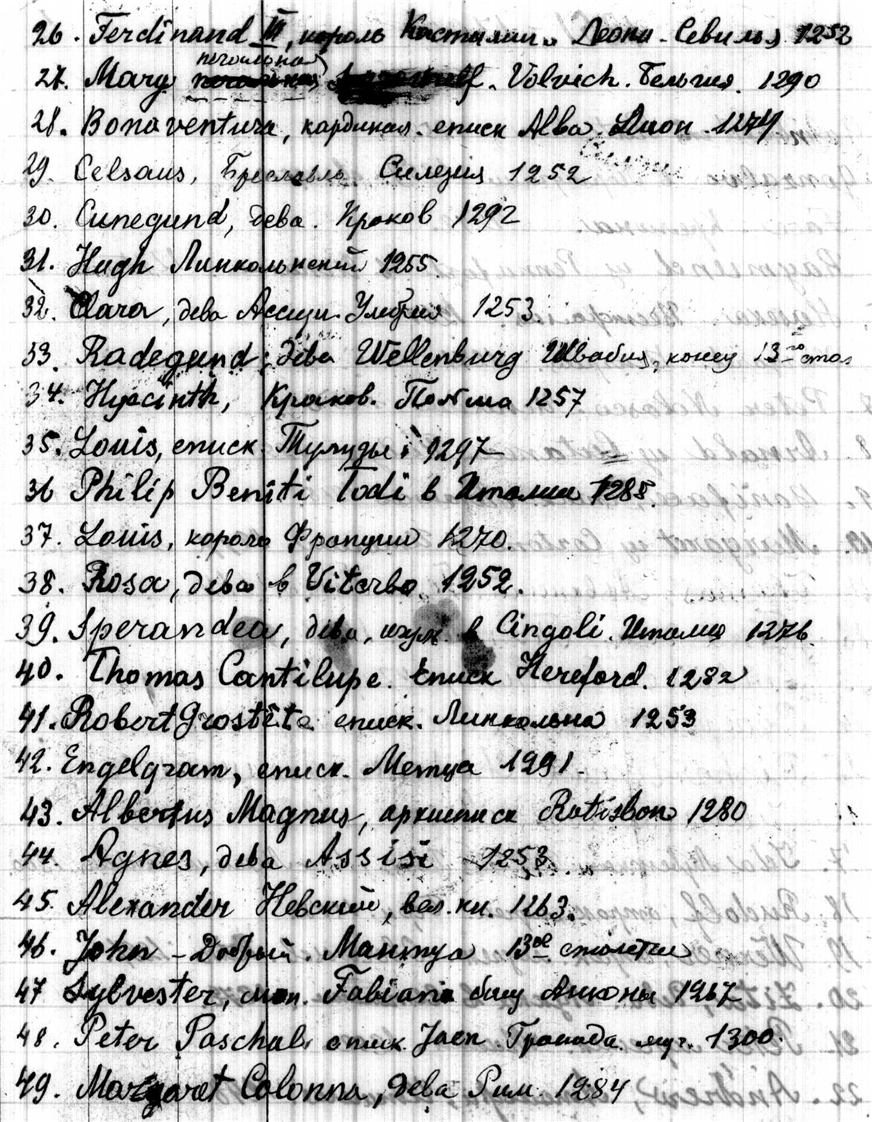 26. Ferdinand III, король Кастилии, Леони - Севильи 1252
печальная
27. Mary Volvich. Бельгия. 1290
28. Bonaventura, кардинал. еписк Alba. Лион 1274
29. Celsaus, Бреславль Силезия 1252
30. Cunegund, дева. Краков 1292
31. Hugh Линкольнский 1255
32. Clara, дева Ассизи. Умбрия 1253
33. Radegund, дева Wellenburg Швабия, конец 13го стол
34. Hyacinth, Краков. Польша 1257
35. Louis, еписк Тулузы 1297
36 Philip Beniti Todi в Италии 1285.
37. Louis, король Франции 1270.
38. Rosa, дева в Viterbo 1252.
39. Sperandea, дева, в Cingoli. Италия 1276.
40. Thomas Cantilupe. Еписк Hereford. 1282
41. Robert Grostête еписк. Линкольна 1253
42. Engelgram, еписк. Метца 1291.
43. Albertus Magnus, архиеписк Ratisbon 1280
44. Agnes, дева Assisi 1253
45. Alexander Невский, вел. кн. 1263.
46. John - Добрый. Мантуа 13ое столетие
47 Sylvester, мон. Fabiana близ Анконы 1267
48. Peter Paschal еписк Jaen Гранада муч. 1300.
49. Margaret Colonna, дева Рим. 1284